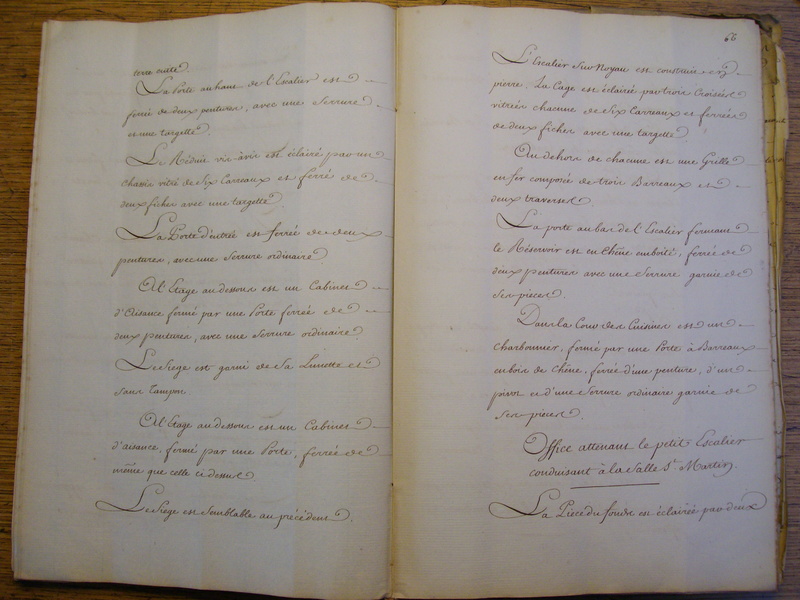 tour suite.
La Porte au haut de l'Escalier est
ferrée de deux pentures, avec une Serrure
et une targette.
Le Réduit vis-à-vis est éclairé par un
chassis vitré de Six Carreaux et ferré de
deux fiches avec une targette.
La Porte d'entrée est ferrée de deux
pentures, avec une Serrure ordinaire
A l'Etage au dessous est un Cabinet
d'Aisance fermé par une Porte ferrée de
deux pentures, avec une Serrure ordinaire.
Le Siege est garni de Sa Lunette et
Sans Tampon.
A l'Etage au dessous est un Cabinet
d'aisance, fermé par une Porte, ferrée de
même que celle ci dessus.
Le Siege est Semblable au précédent.
66
L'Escalier Sur Noyau est construit en
pierre. La Cage est éclairée par trois Croisées
vitrées chacune de Six Carreaux et ferrées
de deux fiches avec une targette.
Au dehors de chacune est une Grille
en fer composée de trois Barreaux et
deux traverses.
La porte au bas de l'Escalier fermant
le Réservoir est en Chêne emboité, ferrée de
deux pentures avec une Serrure garnie de
Ses pieces.
Dans la Cour des Cuisines est un
Charbonnier, fermé par une Porte à Barreaux
en bois de Chêne, ferrée d'une penture, d'un
pivot et d'une Serrure ordinaire garnie de
Ses pieces.
Office attenant le petit Escalier
conduisant à la Salle St. Martin.
La Piece du fond est éclairée par deux